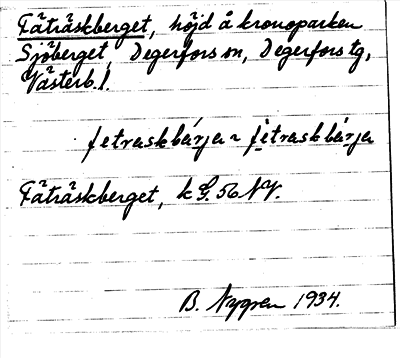 Fäträskberget, höjd å kronoparken
Sjöberget, Degerfors sn, Degerfors tg,
Västerb. l.
fetraskbärja ~ fetraskbärja
Fäträskberget, k G. 56 NV.
B. Nygren 1934.